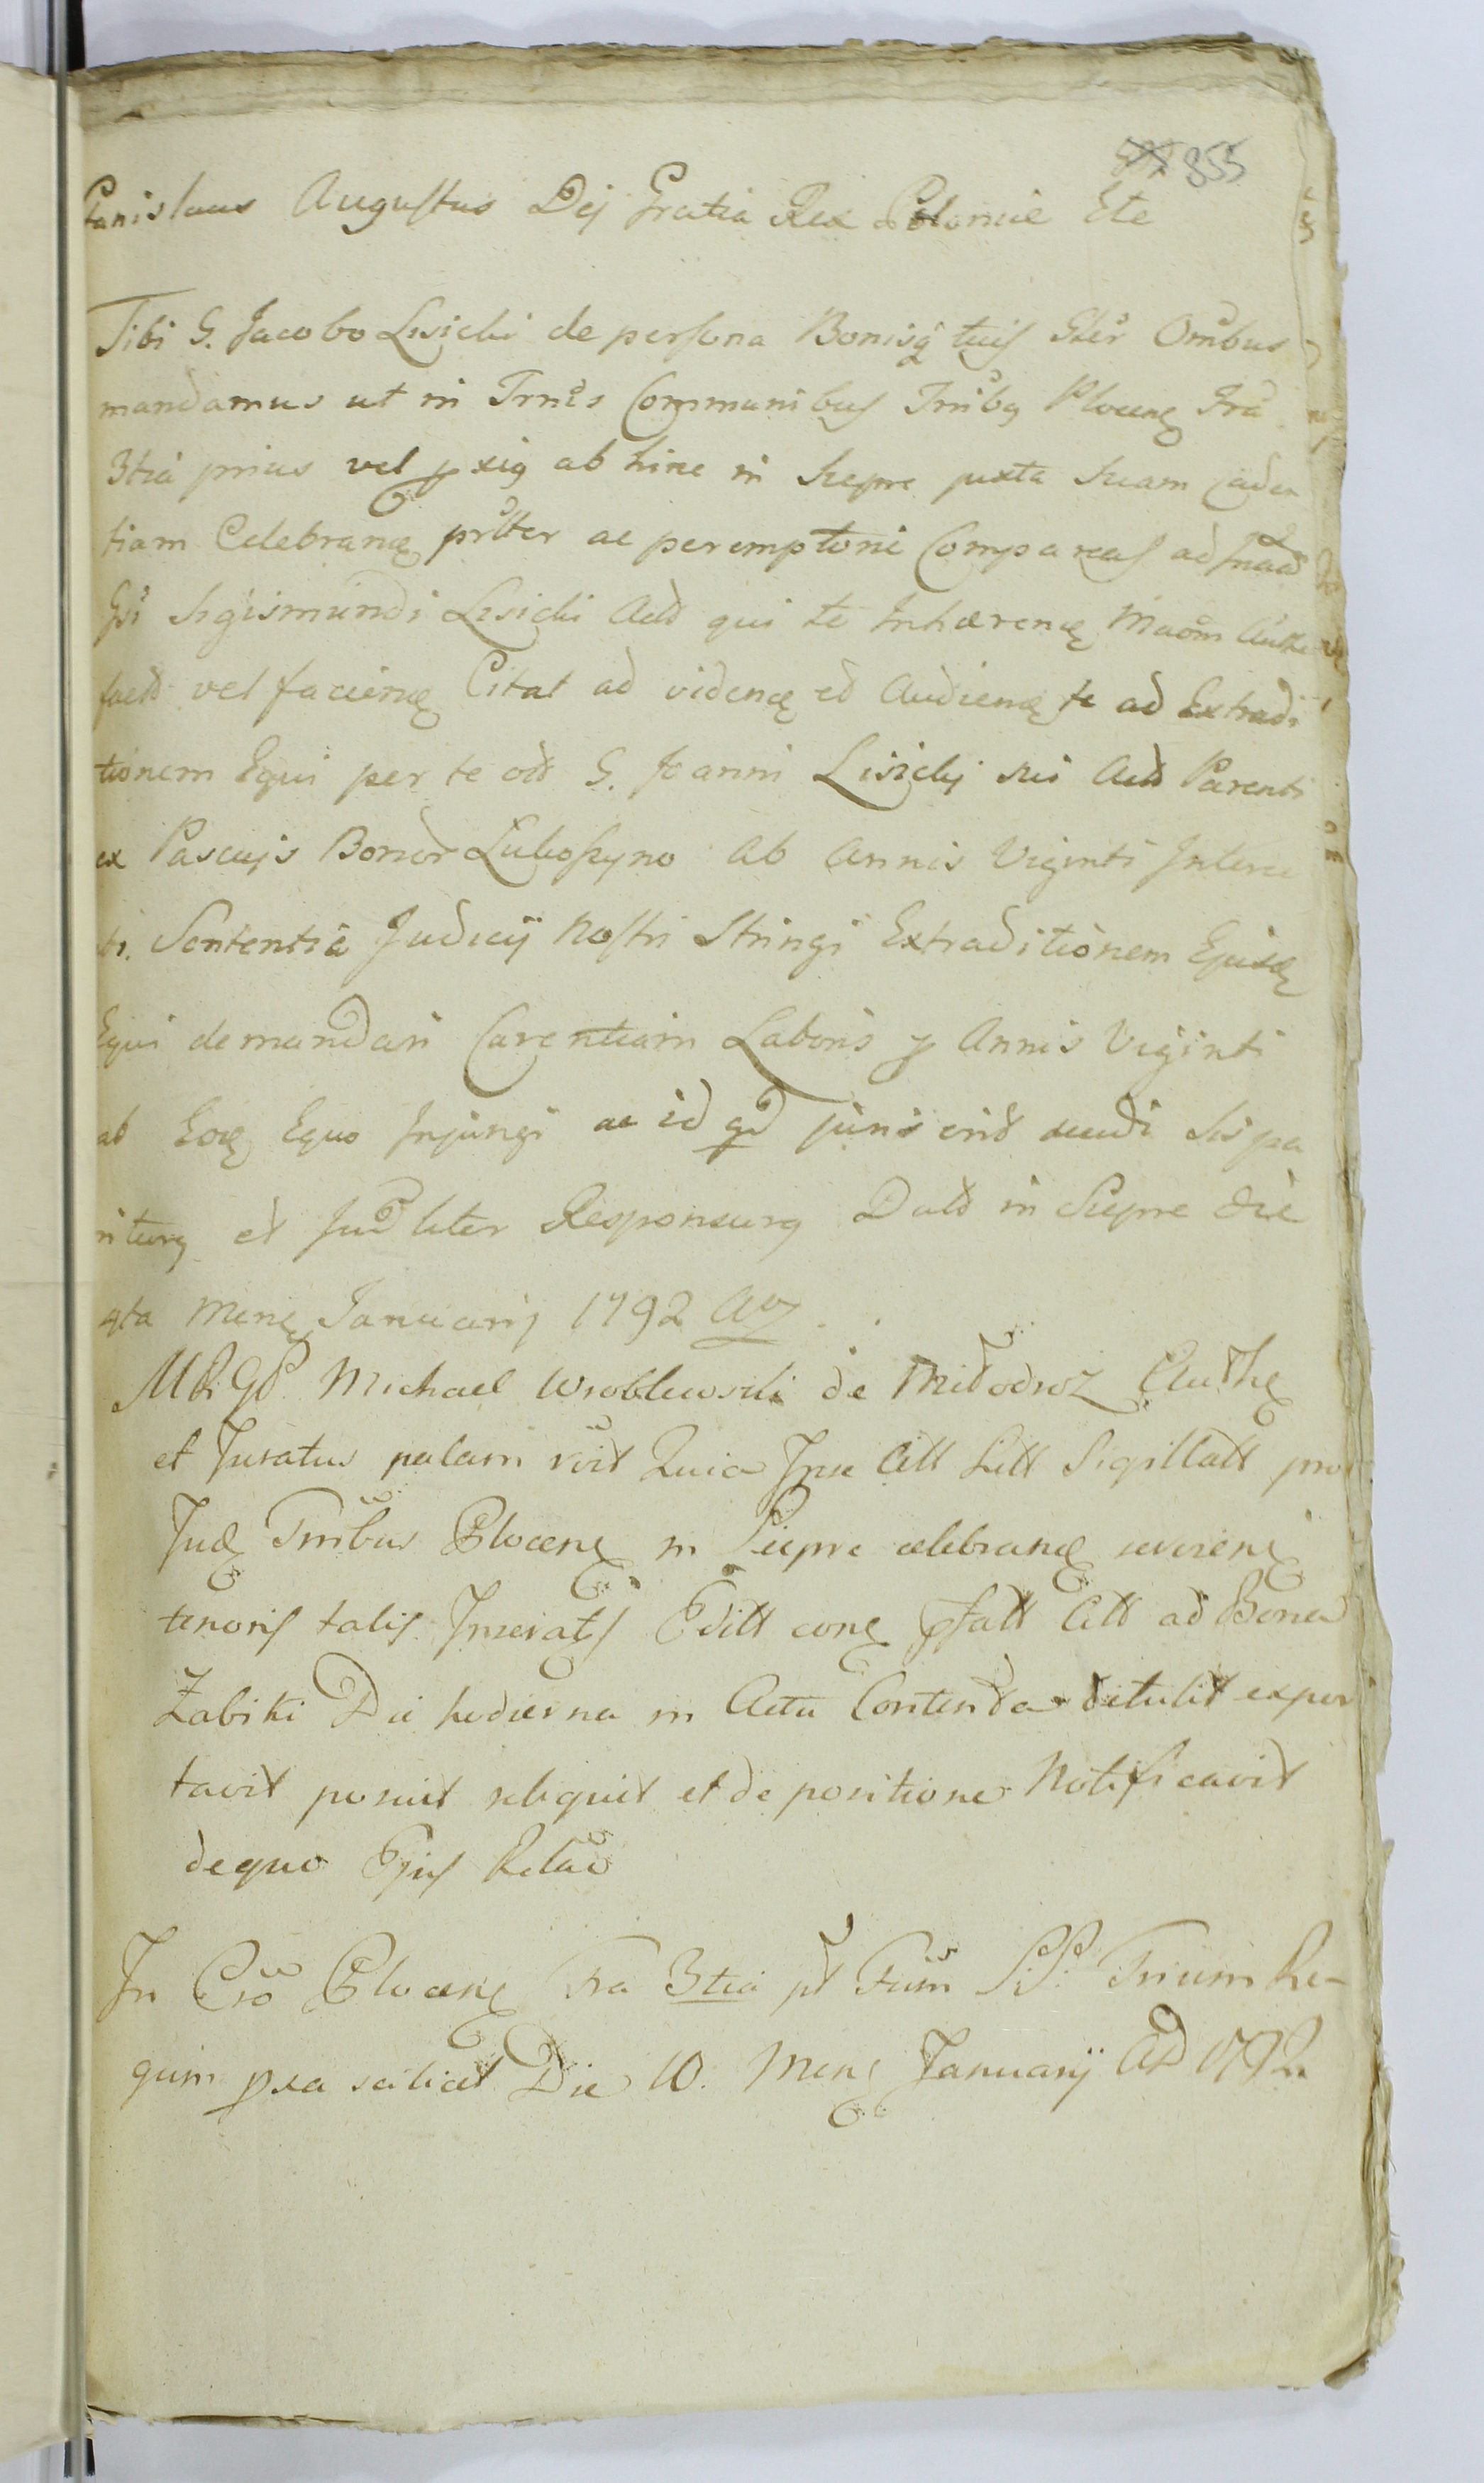 855
Stanislaus Augustus Dej Gratia Rex Polonie Etc
Tibi G. Jacobo Lisicki de persona Bonisq tuis Gler Ombus
mandamus ut in Trnis Communibus Trnibq Plocenę Fra
3tia prius vel pxię ab hinc in Siepre juxta suam Caden
tiam Celebranę prltter ac peremptorie Compareas ad Jnaad
Gsi Sigismundi Lisicki Actd qui te Inhærenę Maom Auth
factd vel facienę Citat ad videnę ed Audienę te ad Extradi
tionem Equi per te old G. Joanni Lisickij sui Actd Parenti
ex Pascuis Bonor Lubossyno ab Annis Viginti Interce
ti. Sententia Judicij Nostri Stringi Extraditionem Ejusdę
Equi demandari Carentiam Laboris p Annis Viginti
ab Eodę Equo Injungi ac id qd juris erit sududi Sis pa
riturq et Judliter Responsurq Datd in Siepre die
4ta Menę Januarij 1792 Ao
MRGP. Michael Wroblewski de Miłodroz Authę
et Juratus palam rčit Quia Jpse Citt Litt Sigillatt pro
Judę Trnibus Plocenę in Siepre celebranę servienę
tenoris talis Inseratę Editt conę psatt Citt ad Bona
Zabiki Die hodierna in Actu Contenta detulit expor
tavit posuit reliquit et de positione Notificavit
dequo Ejus Relao
In Cro Plocenę Fra 3tia pt Fum S.S. Trium Re-
gum pxa scilicet Die 10. Menę Januarij AD 1792.